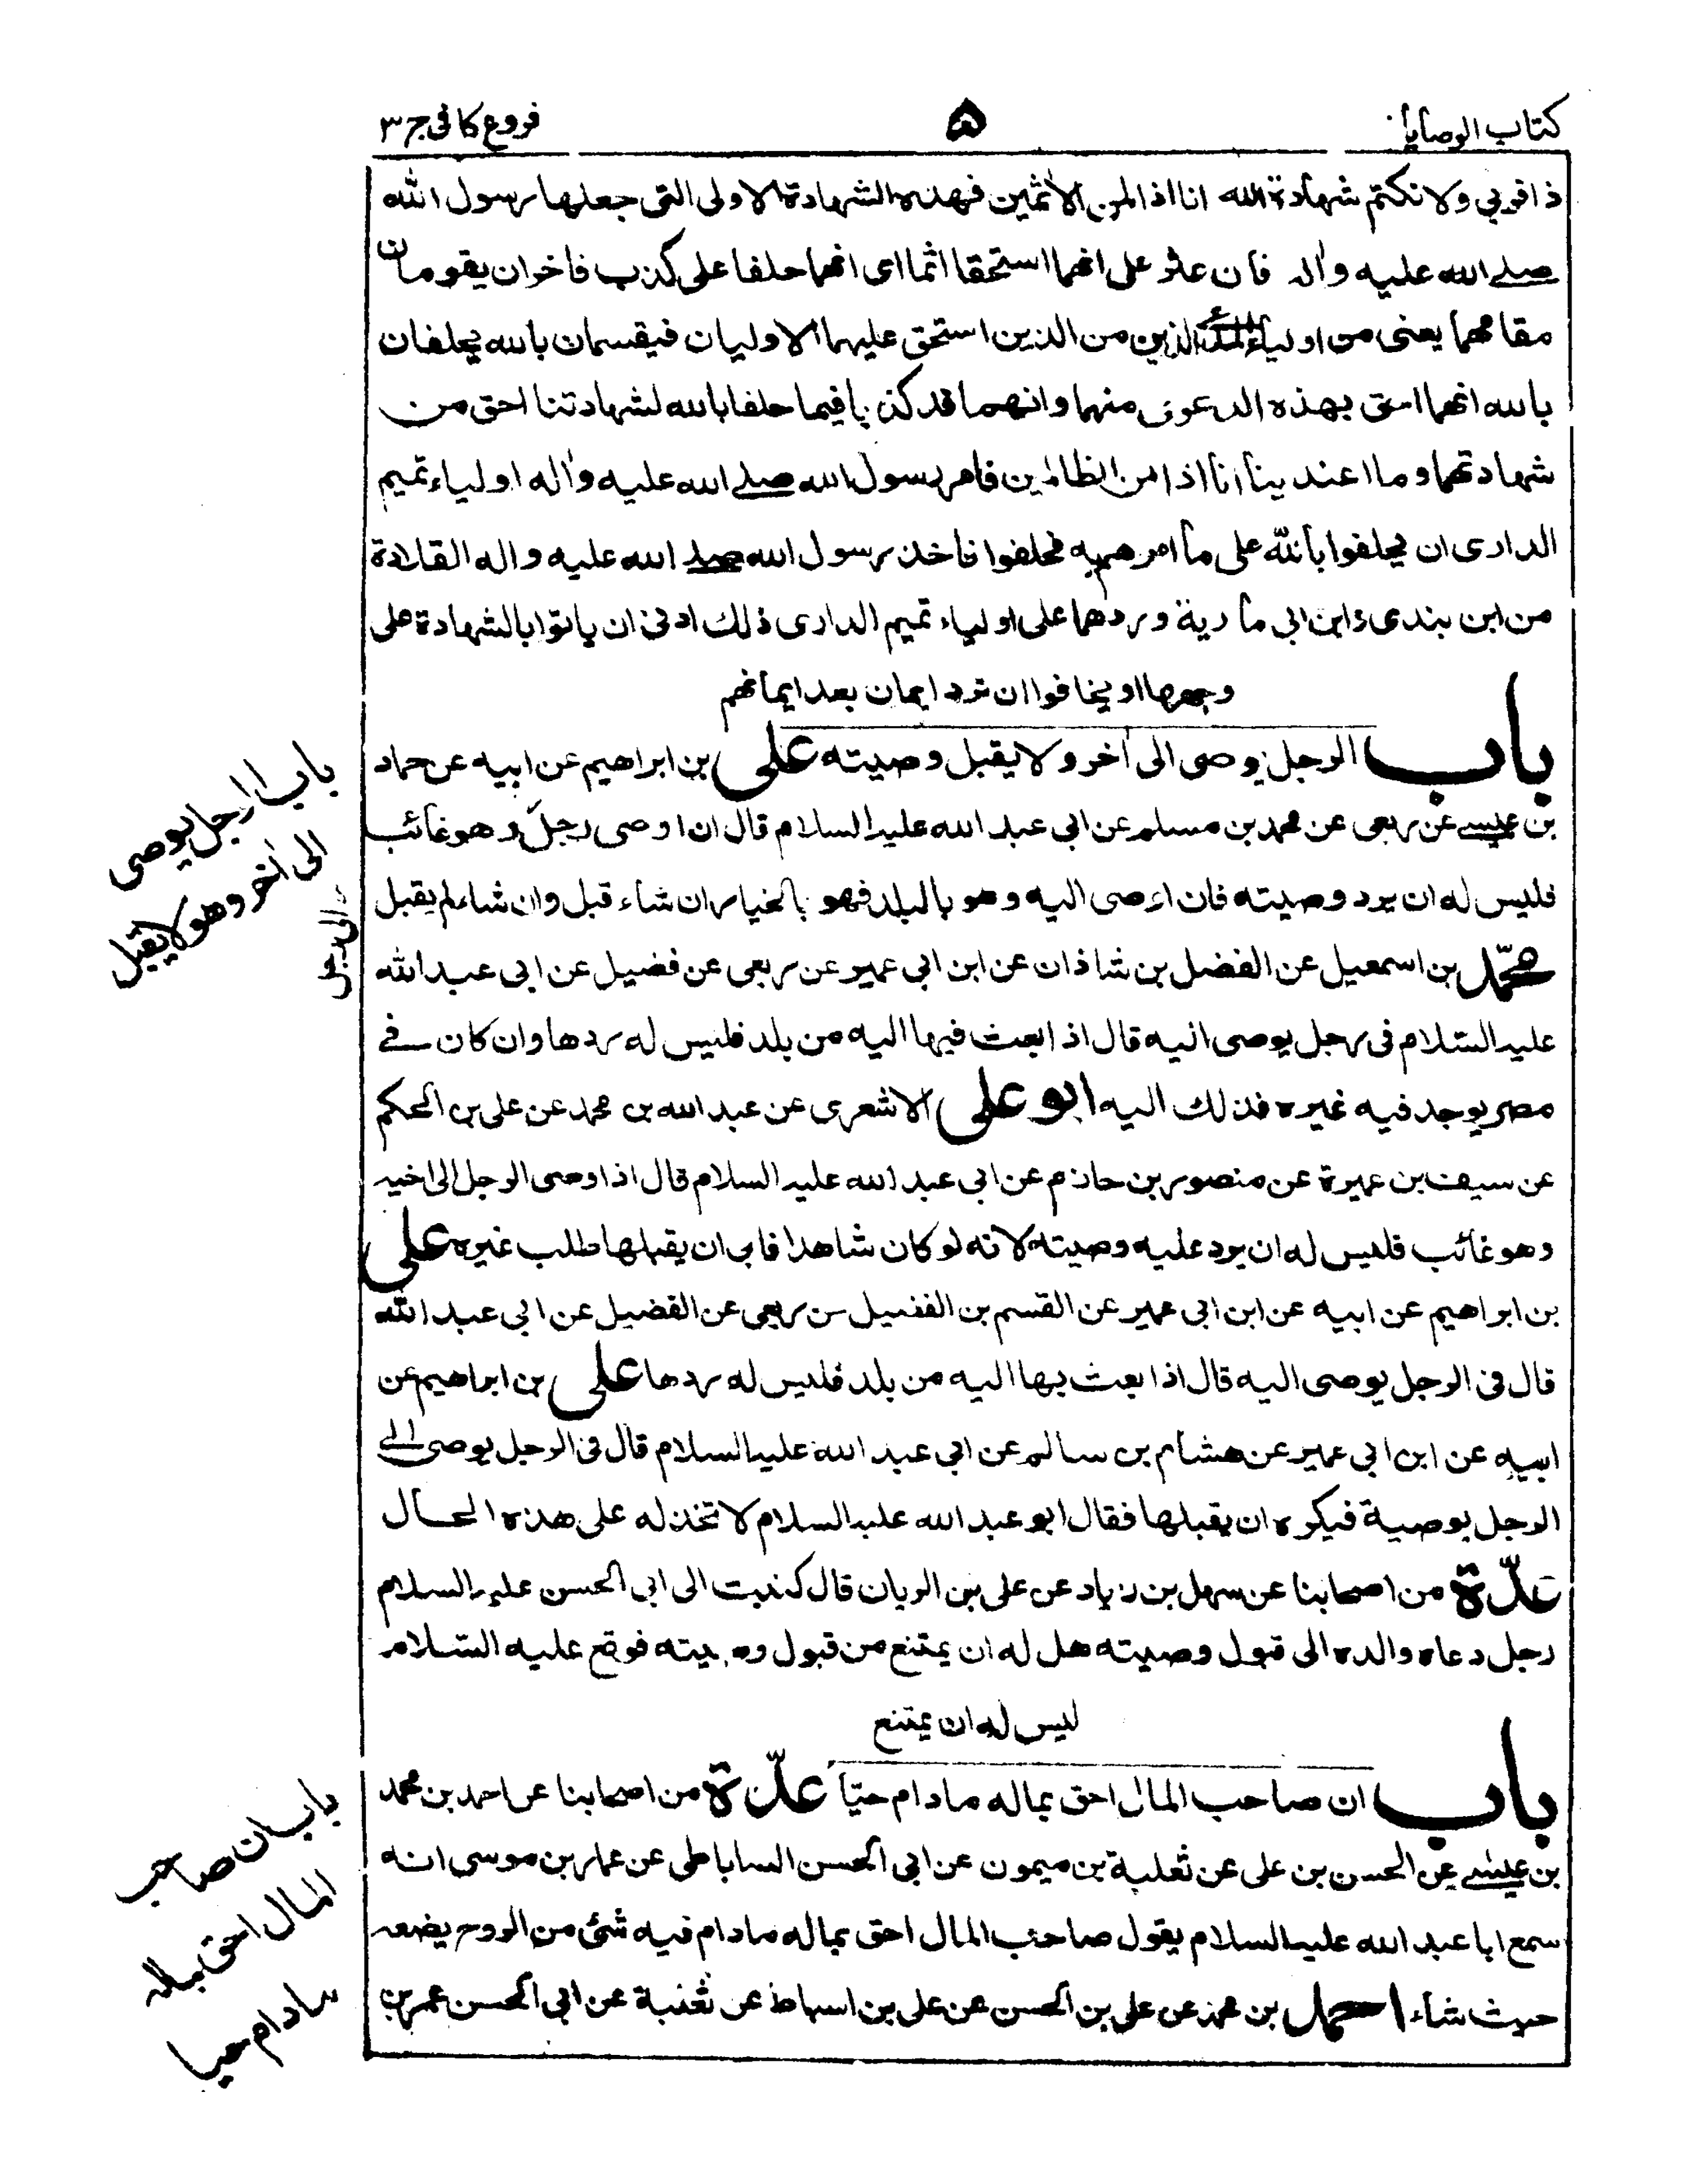 كتاب الوصايا
۵
فروع كافى ج ٣
ذا قربي ولا نكتم شهادة الله انا اذا لمن الاثمين فهذه الشهادة الاولى التى جعلها رسول الله
صلے الله عليه واله فان عثر على انهما استحقا اثما اى انهما حلفا على كذب فاخران يقومان
مقامهما يعنى من اولياء المدعى الذين من الذين استحق عليهما الاوليان فيقسمان بالله يحلفان
بالله انهما احق بهذه الدعوى منهما وانهما قد كذبا فيما حلفا بالله لشهادتنا احق من
شهادتهما وما اعتدينا انا اذا من الظالمين فامر رسول الله صلے الله عليه واله اولياء تميم
الدارى ان يحلفوا بالله على ما امرهم به فحلفوا فاخذ رسول الله صلے الله عليه واله القلادة
من ابن بندى وابن ابي مارية وردهما على اولياء تميم الدارى ذلك ادنى ان ياتوا بالشهادة على
وجهها او يخافوا ان ترد ايمان بعد ايمانهم
باب الرجل يوصى الى اخر ولا يقبل وصيته على بن ابراهيم عن ابيه عن حماد
بن عيسے عن ربعى عن محمد بن مسلم عن ابي عبد الله عليه السلام قال ان اوصى رجل وهو غائب
فليس له ان يرد وصيته فان اوصى اليه وهو بالبلد فهو بالخيار ان شاء قبل وان شاء لم يقبل
محمّد بن اسمعيل عن الفضل بن شاذان عن ابن ابي عمير عن ربعى عن فضيل عن ابي عبد الله
عليه السّلام فى رجل يوصى اليه قال اذا بعث فيها اليه من بلد فليس له ردها وان كان فے
مصر يوجد فيه غيره فذلك اليه ابو على الاشعرى عن عبد الله بن محمد عن على بن الحكم
عن سيف بن عميرة عن منصور بن حازم عن ابي عبد الله عليه السلام قال اذا اوصى الرجل الى اخيه
وهو غائب فليس له ان يرد عليه وصيته لانه لو كان شاهدا فابى ان يقبلها طلب غيره على
بن ابراهيم عن ابيه عن ابن ابي عمير عن القسم بن الفضيل عن ربعى عن الفضيل عن ابي عبد الله
قال فى الرجل يوصى اليه قال اذا بعث بها اليه من بلد فليس له ردها على بن ابراهيم عن
ابيه عن ابن ابي عمير عن هشام بن سالم عن ابي عبد الله عليه السلام قال فى الرجل يوصى الے
الرجل بوصية فيكره ان يقبلها فقال ابو عبد الله عليه السلام لا تخذله على هذه الحال
عدّة من اصحابنا عن سهل بن زياد عن على بن الريان قال كتبت الى ابي الحسن عليه السلام
رجل دعاه والده الى قبول وصيته هل له ان يمتنع من قبول وصيته فوقع عليه السّلام
ليس له ان يمتنع
باب ان صاحب المال احق بماله مادام حيّا عدّة من اصحابنا عن احمد بن محمد
بن عيسے عن الحسن بن على عن ثعلبة بن ميمون عن ابي الحسن الساباطى عن عمار بن موسى انه
سمع ابا عبد الله عليه السلام يقول صاحب المال احق بماله مادام فيه شئ من الروح يضعه
حيث شاء احمد بن محمد عن على بن الحسن عن على بن اسباط عن ثعلبة عن ابي الحسن عمر بن
باب الرجل يوصى
الى اخر وهو لا يقبل
باب ان صاحب
المال احق بماله
مادام حيا